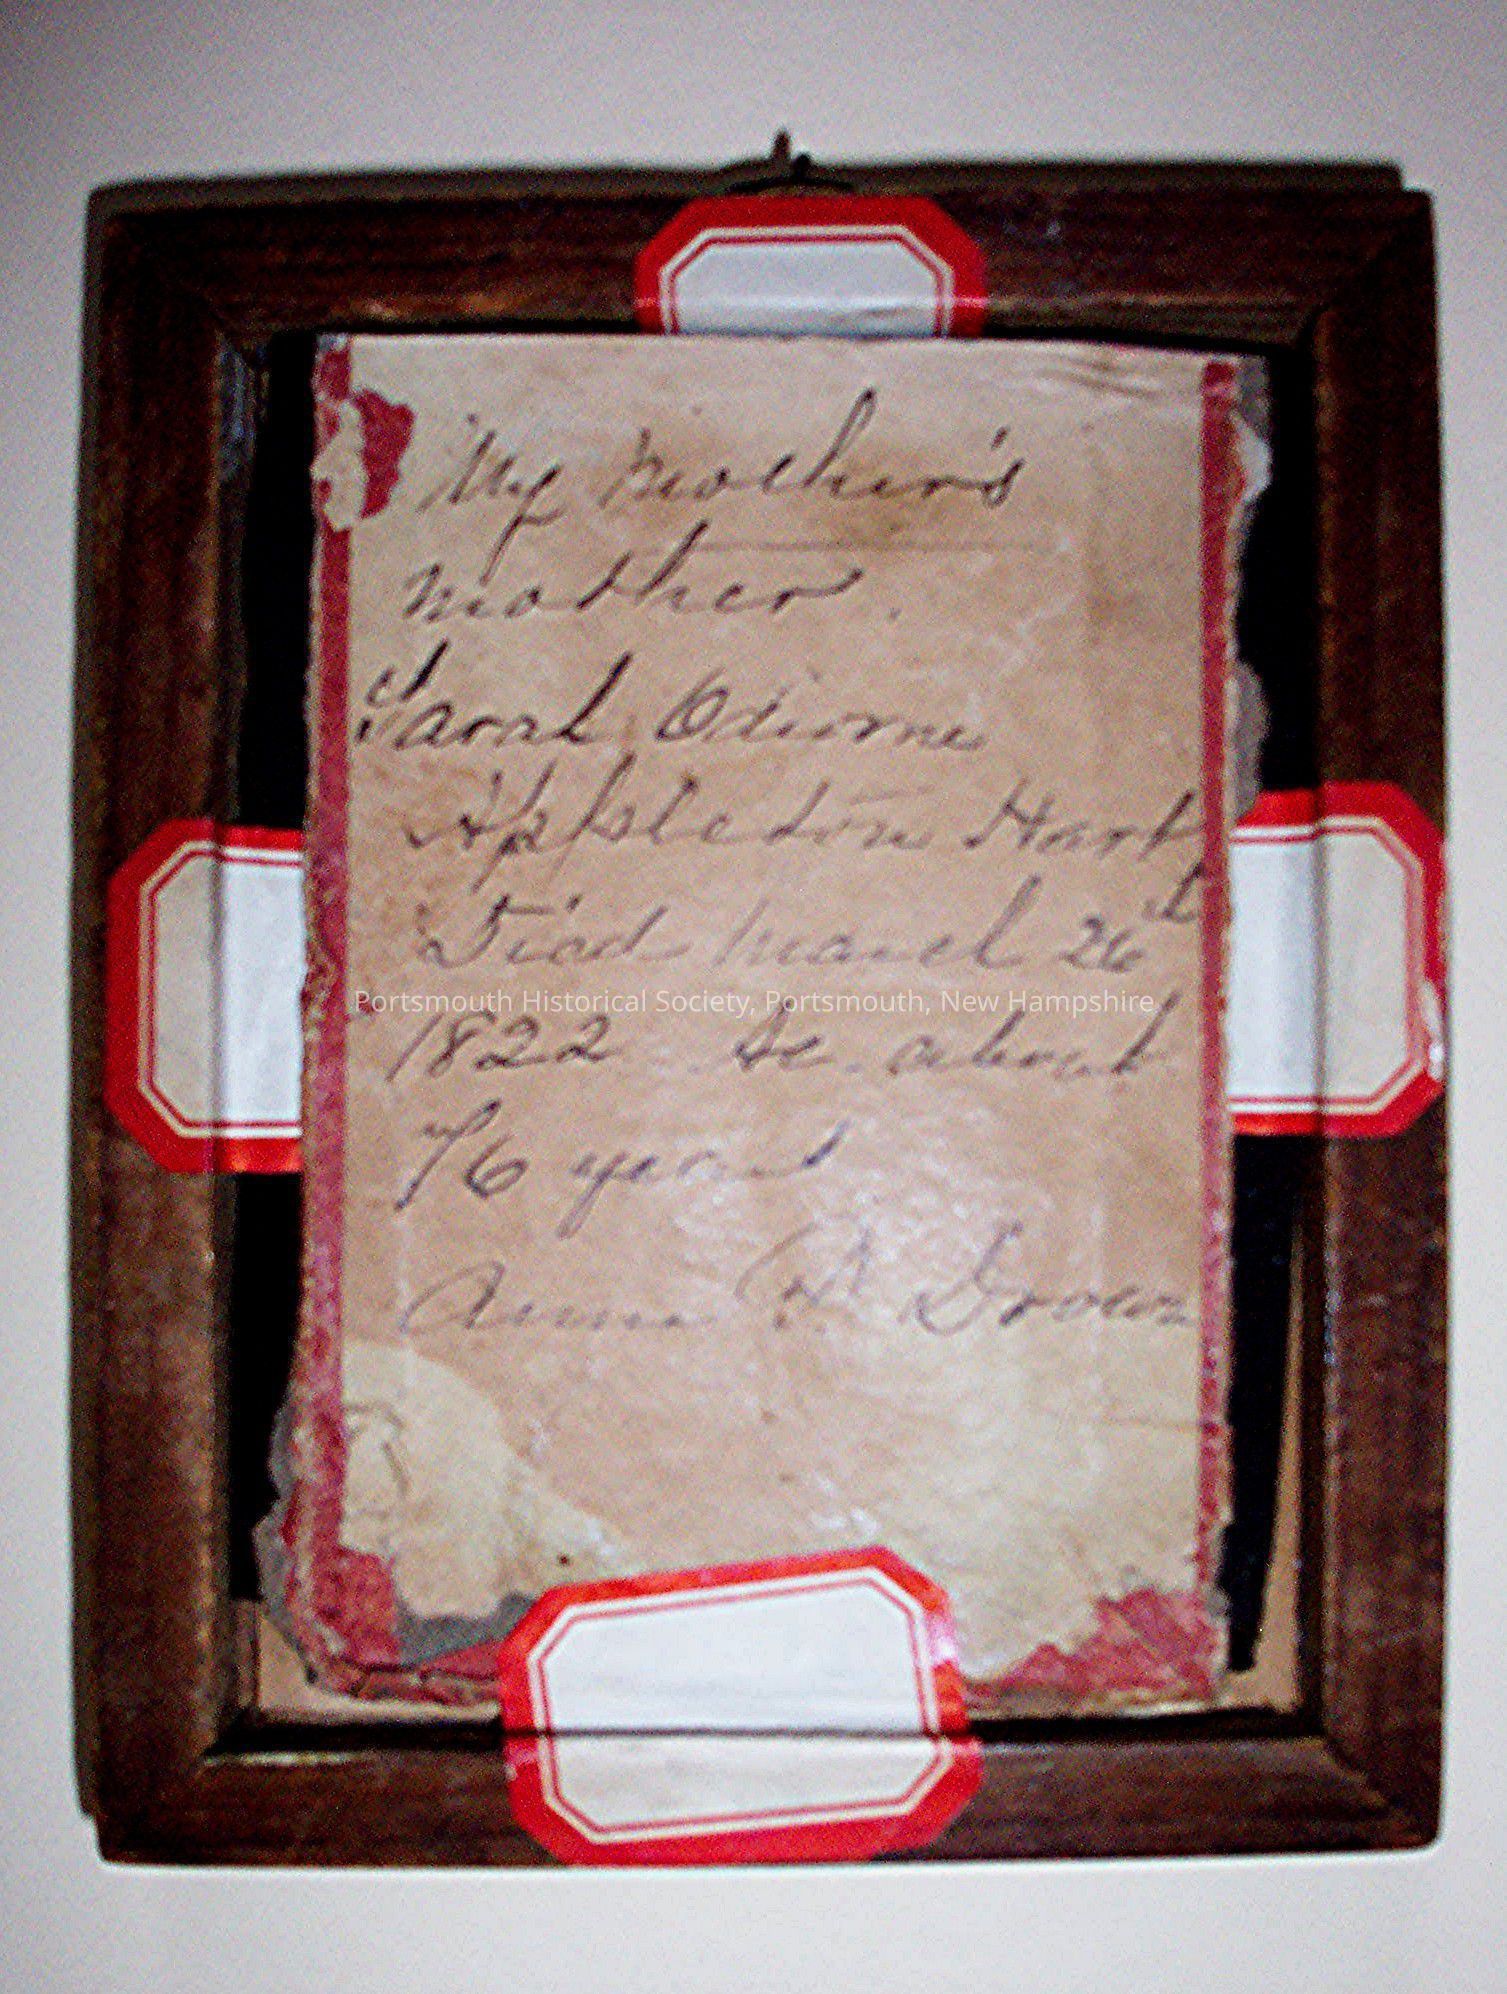 My Mother's
mother.
Sarah Odiorne
Appleton Hart
Died March 26th
Portsmouth Historical Society, Portsmouth, New Hampshire
1822 Ae. about
76 years
Anna H. Drown